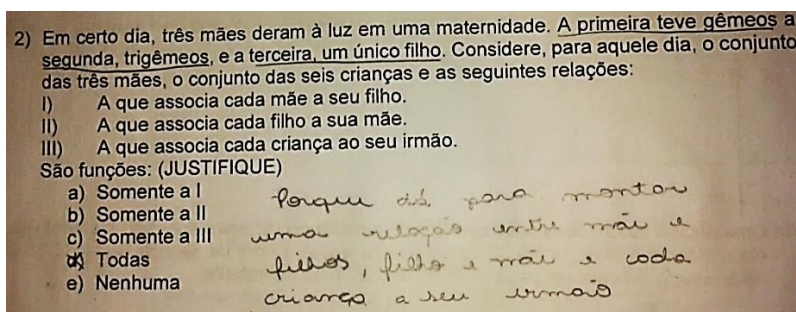 2) Em certo dia, três mães deram à luz em uma maternidade. A primeira teve gêmeos a
segunda, trigêmeos, e a terceira, um único filho. Considere, para aquele dia, o conjunto
das três mães, o conjunto das seis crianças e as seguintes relações:
I) A que associa cada mãe a seu filho.
II) A que associa cada filho a sua mãe.
III) A que associa cada criança ao seu irmão.
São funções: (JUSTIFIQUE)
a) Somente a I
b) Somente a II
c) Somente a III
d) Todas
e) Nenhuma
Porque dá para montar
uma relação entre mãe e
filhos, filho e mãe e coda
criança a seu irmão